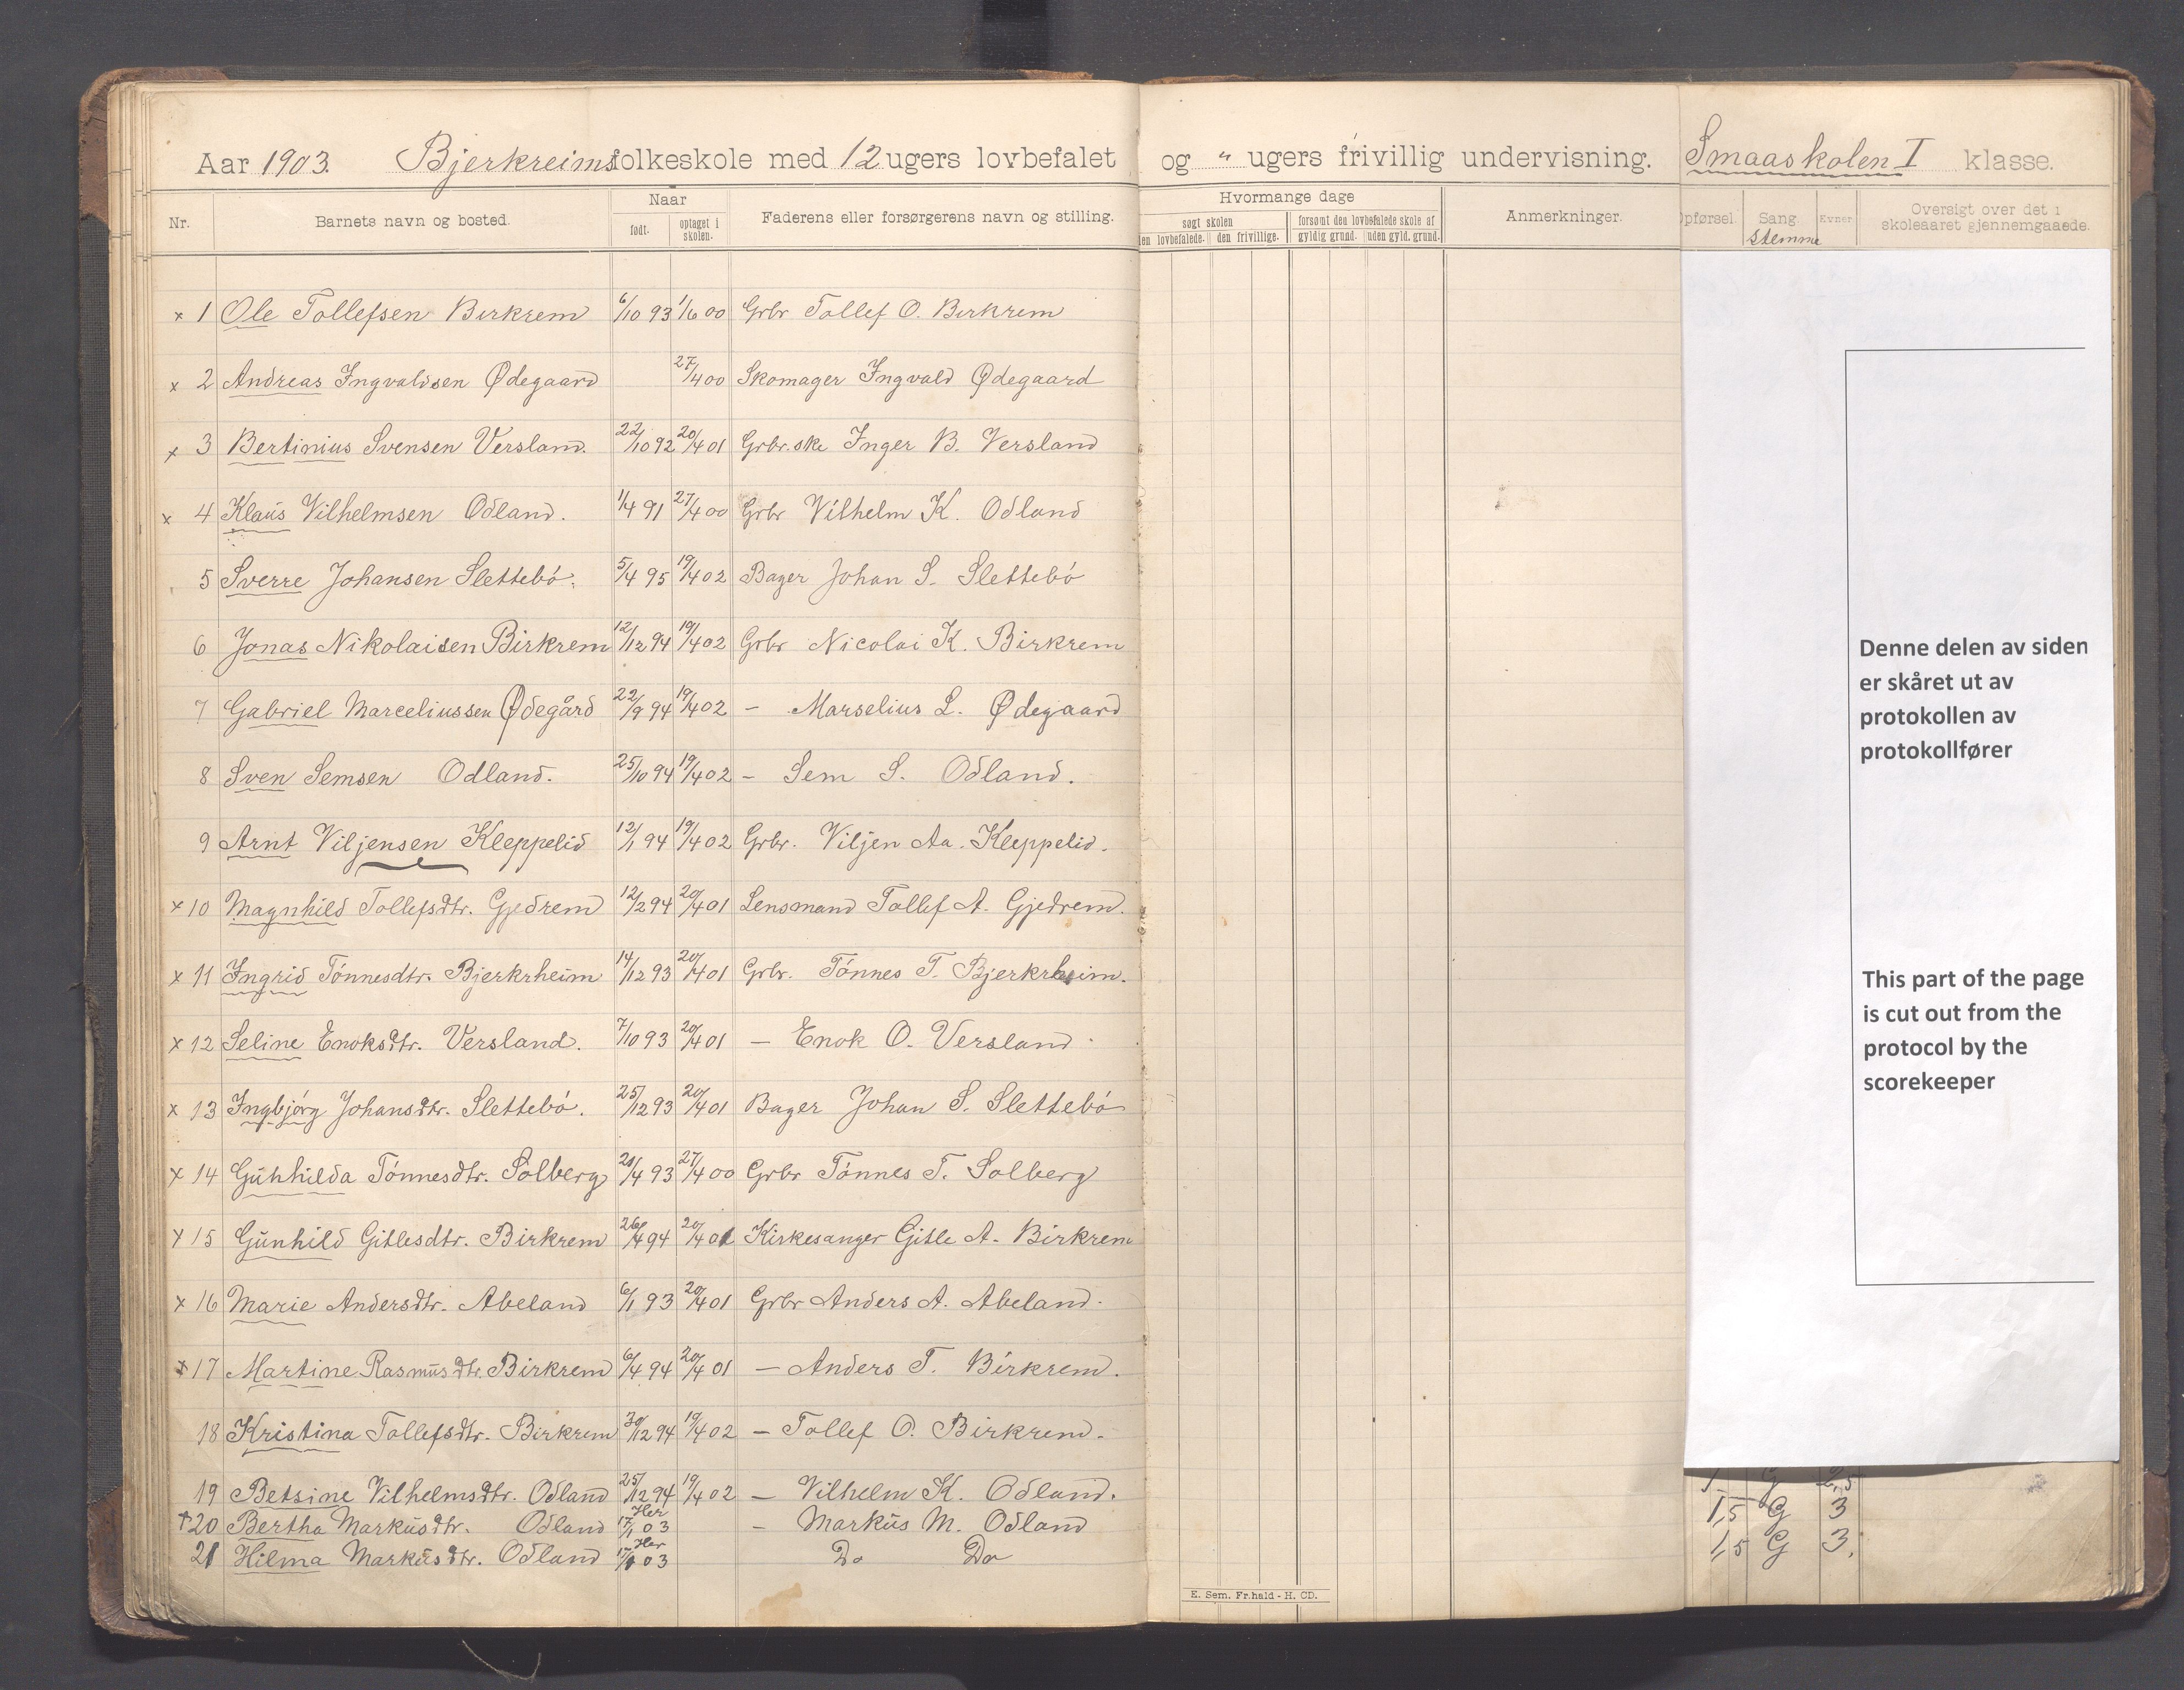 Aar 1903. Bjerkreims folkeskole med 12 ugers lovbefalet og " ugers frivillig undervisning. Smaaskolen I klasse.
Nr. Barnets navn og bosted. Naar født. optaget i skolen. Faderens eller forsørgerens navn og stilling. Hvormange dage søgt skolen den lovbefalede. den frivillige. forsømt den lovbefalede skole af gyldig grund. uden gyld. grund. Anmerkninger. Opførsel. Sang stemme Evner Oversigt over det i skoleaaret gjennemgaaede.
x 1 Ole Tollefsen Birkrem 6/10 93 1/6 00 Grbr Tollef O. Birkrem
x 2 Andreas Ingvaldsen Ødegaard 27/4 00 Skomager Ingvald Ødegaard
x 3 Bertinius Svensen Versland. 22/10 92 20/4 01 Grbr.ske Inger B. Versland
x 4 Klaus Vilhelmsen Odland. 1/4 91 27/4 00 Grbr Vilhelm K. Odland
5 Sverre Johansen Slettebö. 5/4 95 19/4 02 Bager Johan S. Slettebö
6 Jonas Nikolaisen Birkrem 12/12 94 19/4 02 Grbr Nicolai K. Birkrem
7 Gabriel Marceliussen Ødegård 22/9 94 19/4 02 - Marselius L. Ødegaard
8 Sven Semsen Odland. 25/10 94 19/4 02 - Sem S. Odland.
9 Arnt Viljensen Kleppelid 12/1 94 19/4 02 Grbr. Viljen Aa. Kleppelid.
x 10 Magnhild Tollefsdtr. Gjedrem 12/2 94 20/4 01 Lensmand Tollef A. Gjedrem.
x 11 Ingrid Tönnesdtr. Bjerkrheim 14/12 93 20/4 01 Grbr. Tönnes T. Bjerkrheim.
x 12 Seline Enoksdtr. Versland. 7/10 93 20/4 01 - Enok O. Versland
x 13 Ingbjörg Johansdtr. Slettebö. 25/12 93 20/4 01 Bager Johan S. Slettebö
x 14 Gunhilda Tönnesdtr. Solberg 21/4 93 27/4 00 Grbr Tönnes T. Solberg
x 15 Gunhild Gitlesdtr. Birkrem 26/4 94 20/4 01 Kirkesanger Gitle A. Birkrem
x 16 Marie Andersdtr. Abeland 6/1 93 20/4 01 Grbr Anders A. Abeland.
x 17 Martine Rasmusdtr. Birkrem 6/4 94 20/4 01 - Anders T. Birkrem.
18 Kristina Tollefsdtr. Birkrem 30/12 94 19/4 02 - Tollef O. Birkrem.
19 Betsine Vilhelmsdtr. Odland 25/12 94 19/4 02 - Vilhelm K. Odland.
20 Bertha Markusdtr. Odland Her 17/1 03 - Markus M. Odland 1,5 G 3
21 Hilma Markusdtr. Odland Her 17/1 03 Do Do 1,5 G 3.
E. Sem. Fr.hald - H. CD.
Denne delen av siden
er skåret ut av
protokollen av
protokollfører
This part of the page
is cut out from the
protocol by the
scorekeeper